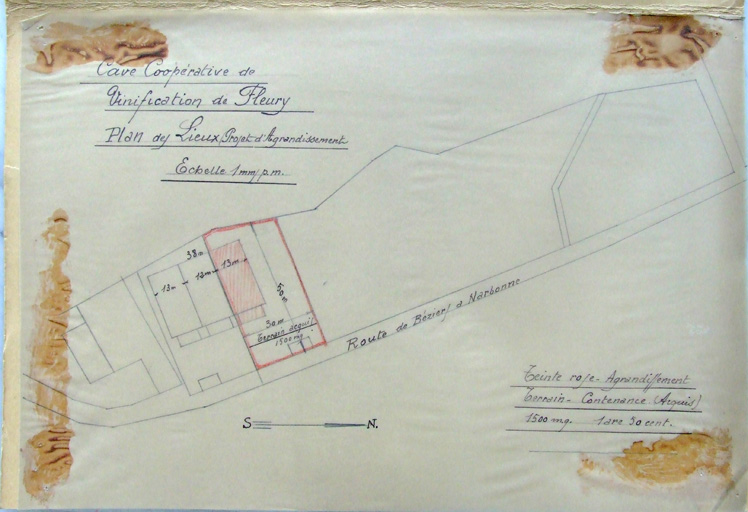 Cave Coopérative de
Vinification de Fleury
Plan des Lieux, Projet d'Agrandissement
Echelle 1mm/p.m.
38m
13m
12m
13m
50m
30m
Terrain acquis
1500mq
Route de Béziers à Narbonne
Teinte rose - Agrandissement
Terrain - Contenance (Acquis)
1500 mq. 1 are 50 cent.
S N.